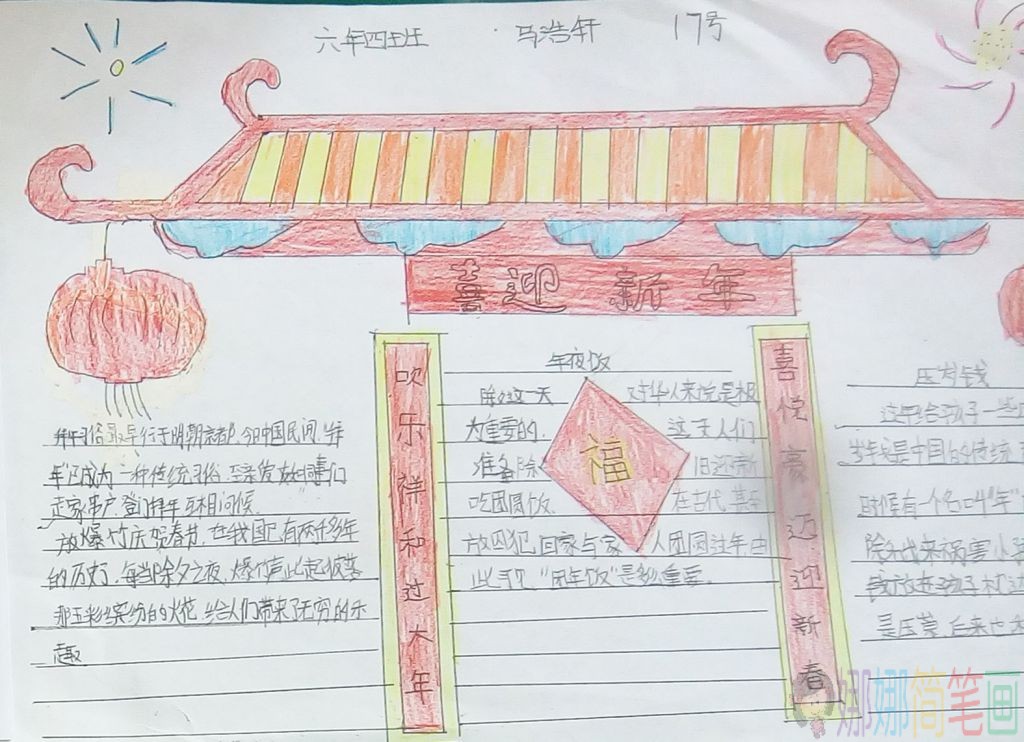 六年四班 马浩轩 17号
喜迎新年
吹乐祥和过大年
喜悦豪迈迎新春
拜年习俗最早行于明朝京都,今日中国民间,
年已成为一种传统习俗,至亲发
走家串户,登门拜年互相问候。
放爆竹庆贺春节,在我国已有两千多年
的历史,每当除夕之夜,爆竹声此起彼落
那五彩缤纷的火花,给人们带来了无穷的乐
趣
年夜饭
除夕这一天 对华人来说是极
为重要的, 这一天人们
准备除 旧迎新
吃团圆饭, 在古代
放囚犯回家与家 人团圆过年,由
此可见,“团年饭”是多么重要。
福
压岁钱
这年给孩子一些
岁钱是中国的传统
时候有一个名叫“年”
除夕出来祸害小孩
钱放在孩子枕边
是压祟,后来也
娜娜简笔画